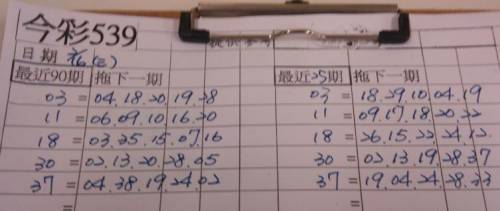 今彩539
日期 2/6(三)
最近90期 拖下一期 最近25期 拖下一期
03 = 04.18.20.19.28 03 = 18.29.10.04.19
11 = 06.09.10.16.20 11 = 09.17.18.20.22
18 = 03.25.15.07.16 18 = 26.15.22.24.12
30 = 02.13.20.28.05 30 = 02.13.19.28.37
37 = 04.38.19.24.02 37 = 19.04.24.28.33
= =